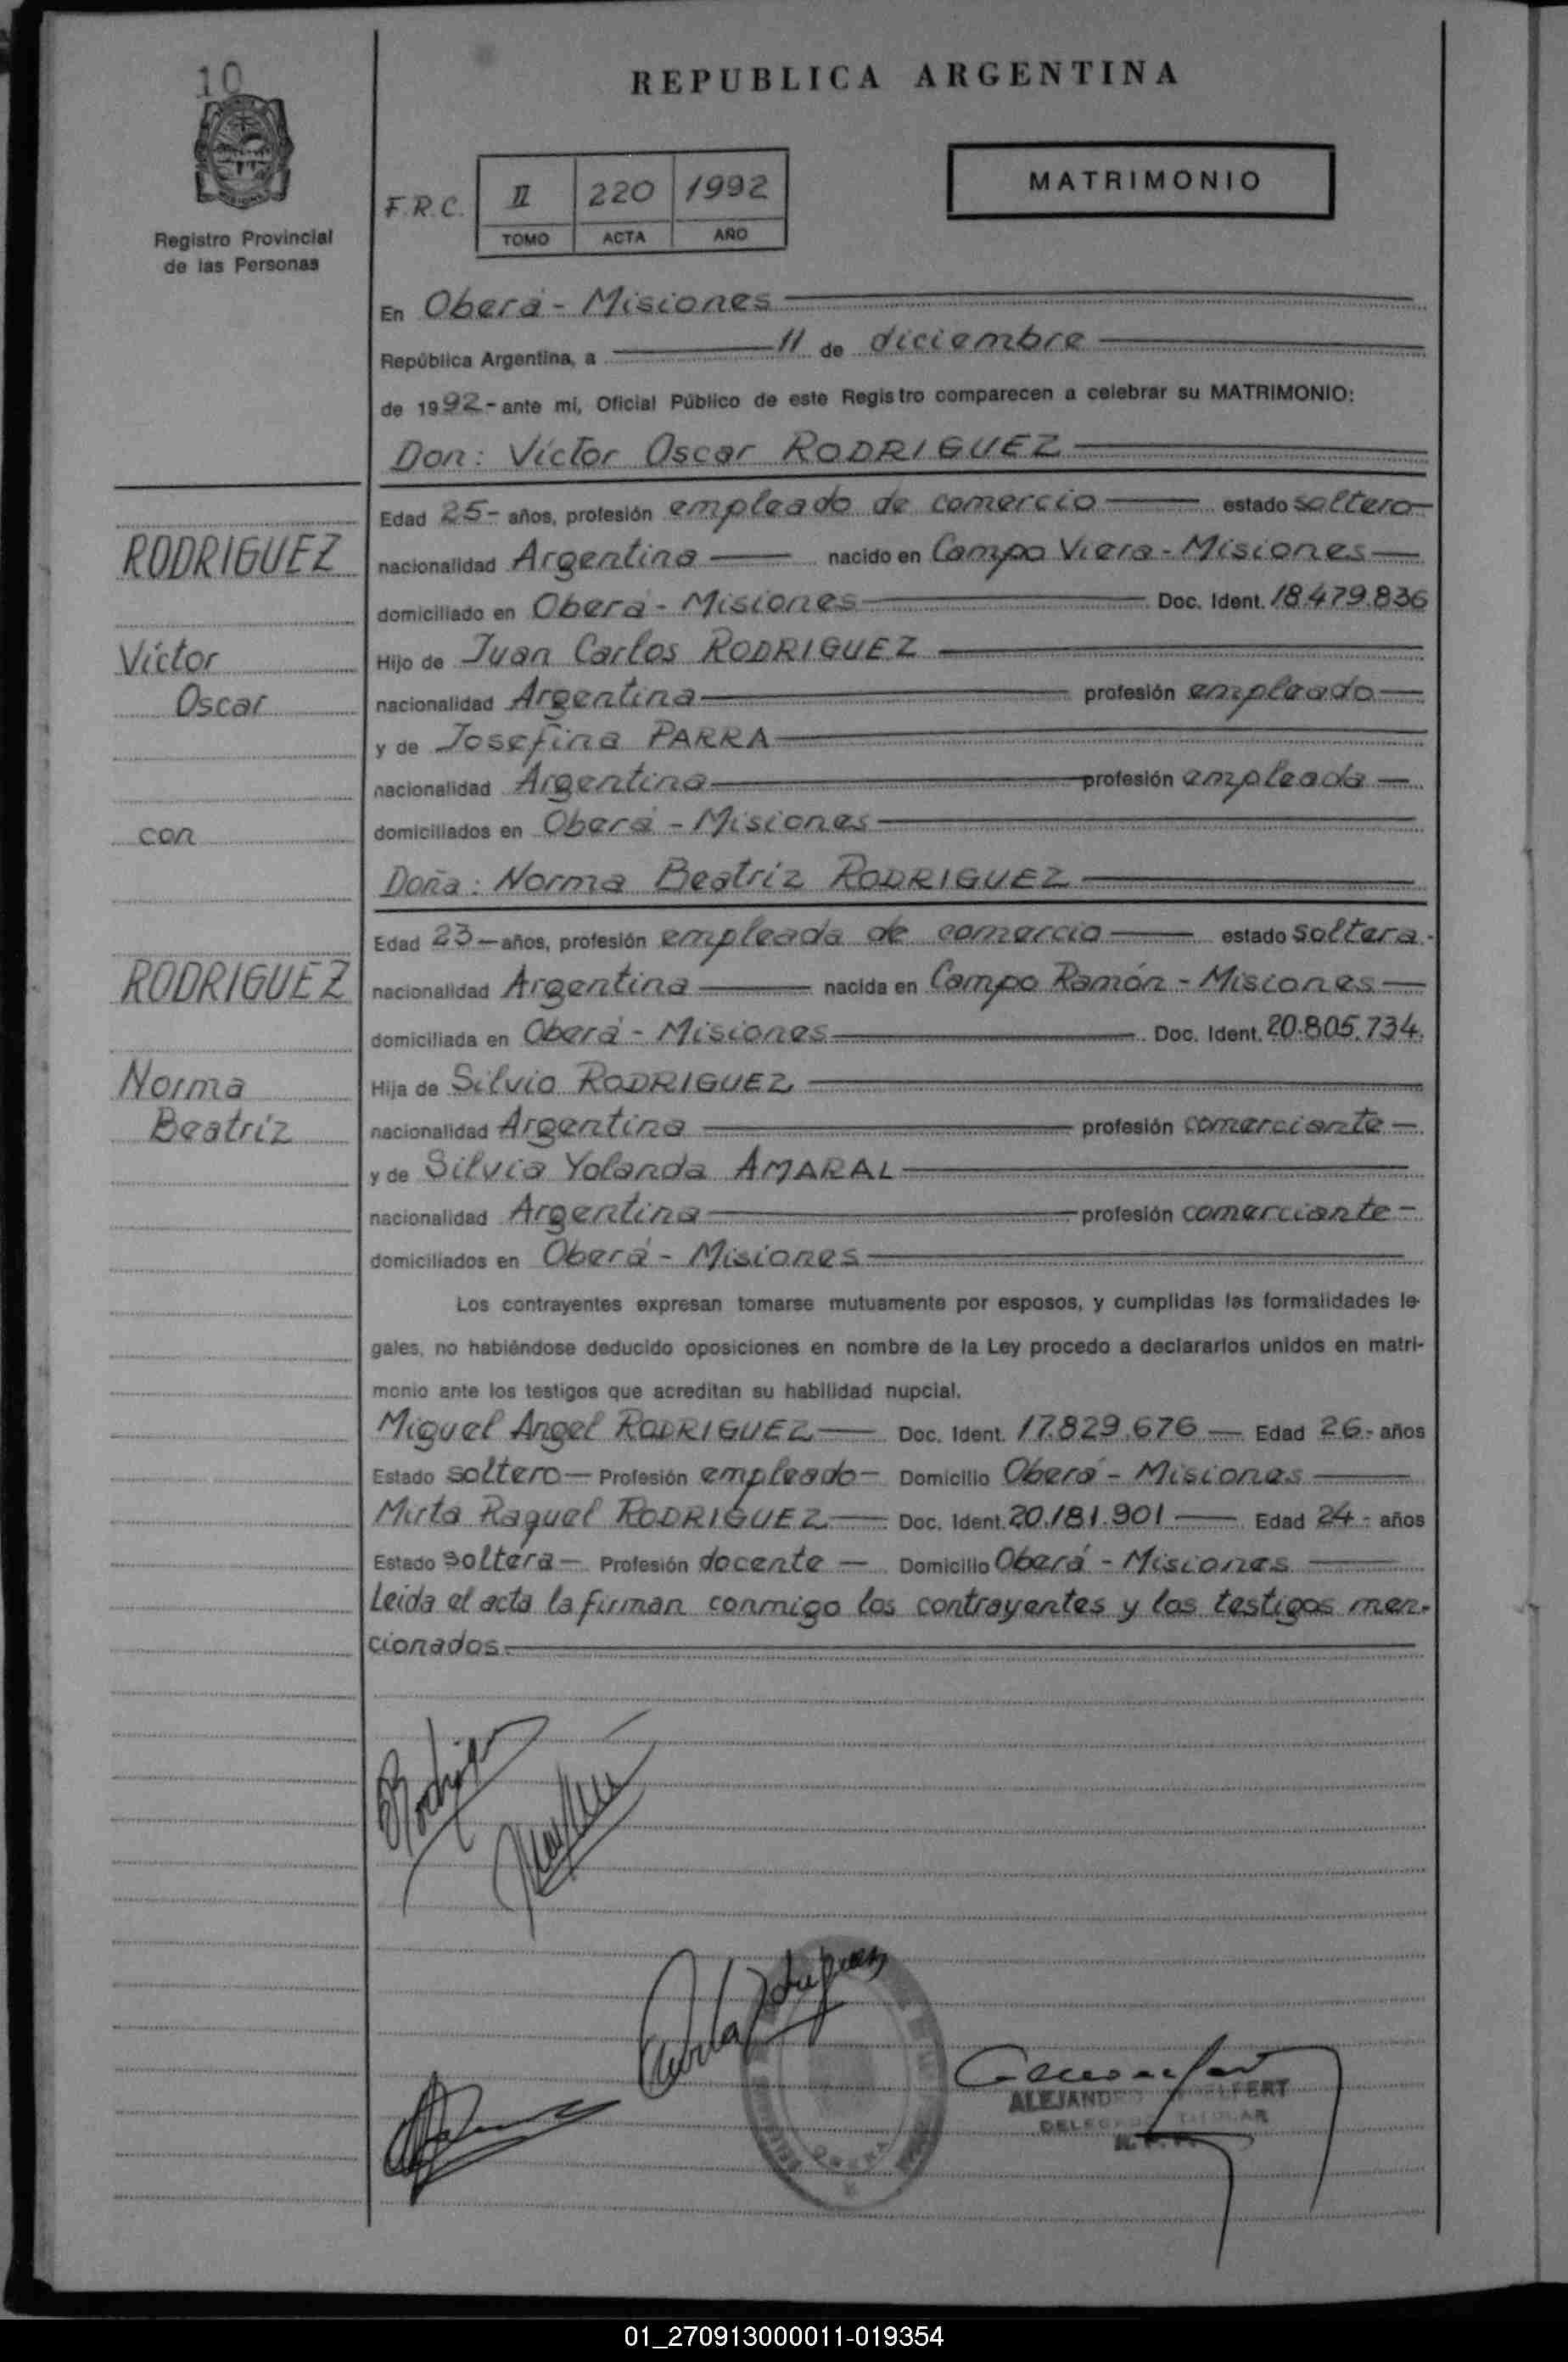 10
REPUBLICA ARGENTINA
Registro Provincial
de las Personas
F.R.C.
II 220 1992
TOMO ACTA AÑO
MATRIMONIO
En Oberá - Misiones
República Argentina, a 11 de diciembre
de 1992 - ante mí, Oficial Público de este Registro comparecen a celebrar su MATRIMONIO:
Don: Víctor Oscar RODRIGUEZ
Edad 25- años, profesión empleado de comercio estado soltero
nacionalidad Argentina nacido en Campo Viera - Misiones
domiciliado en Oberá - Misiones Doc. Ident. 18.479.836
Hijo de Juan Carlos RODRIGUEZ
nacionalidad Argentina profesión empleado
y de Josefina PARRA
nacionalidad Argentina profesión empleada
domiciliados en Oberá - Misiones
RODRIGUEZ
Víctor
Oscar
con
Doña: Norma Beatríz RODRIGUEZ
Edad 23 - años, profesión empleada de comercio estado soltera -
nacionalidad Argentina nacida en Campo Ramón - Misiones
domiciliada en Oberá - Misiones Doc. Ident. 20.805.734.
Hija de Silvio RODRIGUEZ
nacionalidad Argentina profesión comerciante
y de Silvia Yolanda AMARAL
nacionalidad Argentina profesión comerciante -
domiciliados en Oberá - Misiones
RODRIGUEZ
Norma
Beatríz
Los contrayentes expresan tomarse mutuamente por esposos, y cumplidas las formalidades le-
gales, no habiéndose deducido oposiciones en nombre de la Ley procedo a declararlos unidos en matri-
monio ante los testigos que acreditan su habilidad nupcial.
Miguel Angel RODRIGUEZ Doc. Ident. 17.829.676 Edad 26 - años
Estado soltero Profesión empleado - Domicilio Oberá - Misiones
Mirta Raquel RODRIGUEZ Doc. Ident. 20.181.901 Edad 24 - años
Estado soltera - Profesión docente Domicilio Oberá - Misiones
Leída el acta la firman conmigo los contrayentes y los testigos men-
cionados.
ALEJANDRO
DELEGADO TITULAR
01_270913000011-019354